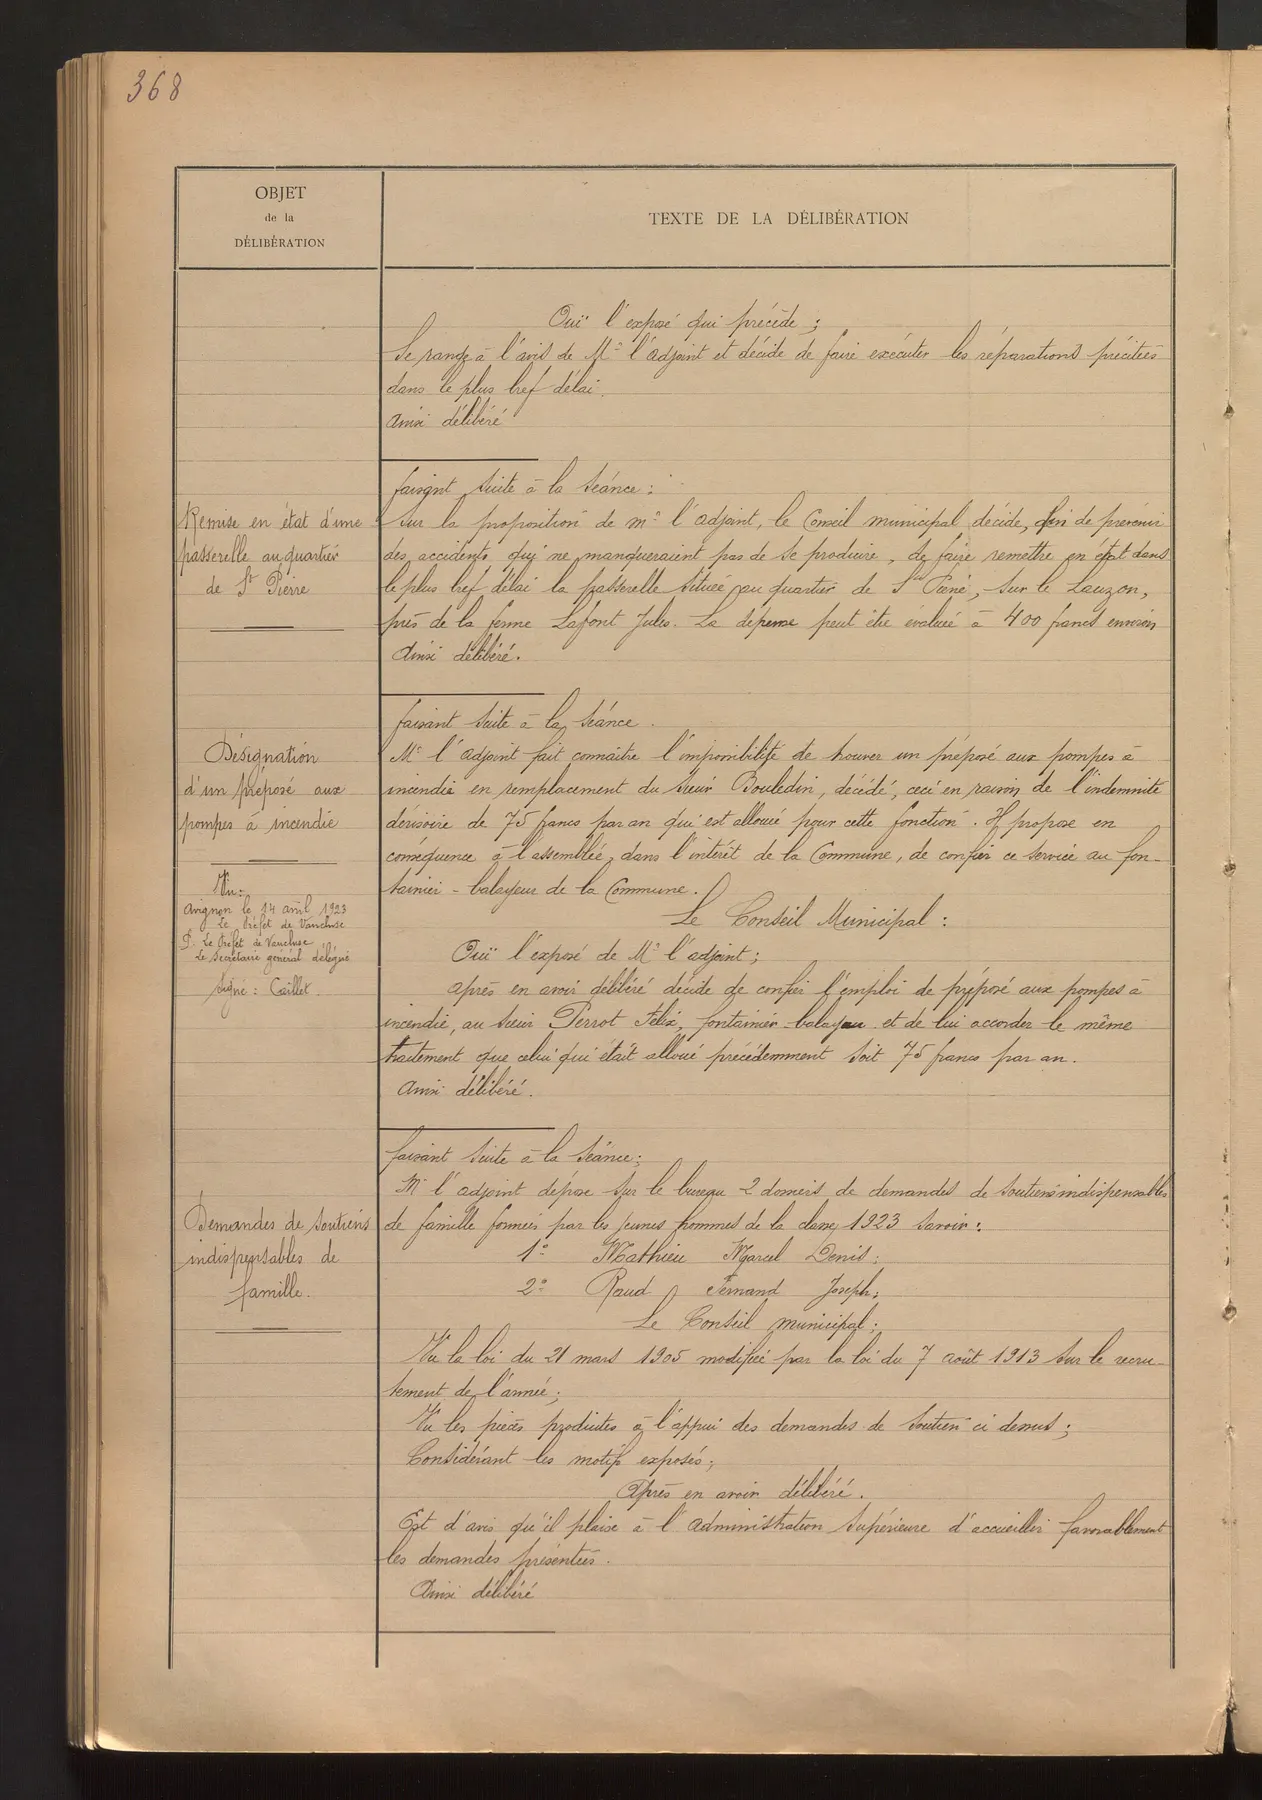 368
OBJET
de la
DÉLIBÉRATION
TEXTE DE LA DÉLIBÉRATION
Ouï l'exposé qui précède ;
Se range à l'avis de Mr l'adjoint et décide de faire exécuter les réparations précitées
dans le plus bref délai.
Ainsi délibéré
Remise en état d'une
passerelle au quartier
de St Pierre
faisant suite à la séance :
Sur la proposition de mr l'adjoint, le Conseil municipal décide, afin de prévenir
des accidents qui ne manqueraient pas de se produire, de faire remettre en état dans
le plus bref délai la passerelle située au quartier de St Pierre, sur le Lauzon,
près de la ferme Lafont Jules. La dépense peut être évaluée à 400 francs environ
Ainsi délibéré.
Désignation
d'un préposé aux
pompes à incendie
Vu :
Avignon le 14 avril 1923
Le Préfet de Vaucluse
P. Le Préfet de Vaucluse
Le Secrétaire général délégué
Signé : Caillet
faisant suite à la séance.
Mr l'adjoint fait connaître l'impossibilité de trouver un préposé aux pompes à
incendie en remplacement du sieur Bouledin, décédé, ceci en raison de l'indemnité
dérisoire de 75 francs par an qui est allouée pour cette fonction. Il propose en
conséquence à l'assemblée, dans l'intérêt de la Commune, de confier ce service au fon-
tainier-balayeur de la Commune.
Le Conseil Municipal :
Ouï l'exposé de Mr l'adjoint ;
après en avoir délibéré décide de confier l'emploi de préposé aux pompes à
incendie, au sieur Perrot Félix, fontainier-balayeur et de lui accorder le même
traitement que celui qui était alloué précédemment soit 75 francs par an.
Ainsi délibéré.
Demandes de soutiens
indispensables de
famille.
faisant suite à la séance ;
Mr l'adjoint dépose sur le bureau 2 dossiers de demandes de soutiens indispensables
de famille formées par les jeunes hommes de la classe 1923 savoir :
1° Mathieu Marcel Denis ;
2° Raud Fernand Joseph ;
Le Conseil municipal ;
Vu la loi du 21 mars 1905 modifiée par la loi du 7 août 1913 sur le recru-
tement de l'armée ;
Vu les pièces produites à l'appui des demandes de soutien ci dessus ;
Considérant les motifs exposés ;
Après en avoir délibéré.
Est d'avis qu'il plaise à l'administration supérieure d'accueillir favorablement
les demandes présentées.
Ainsi délibéré